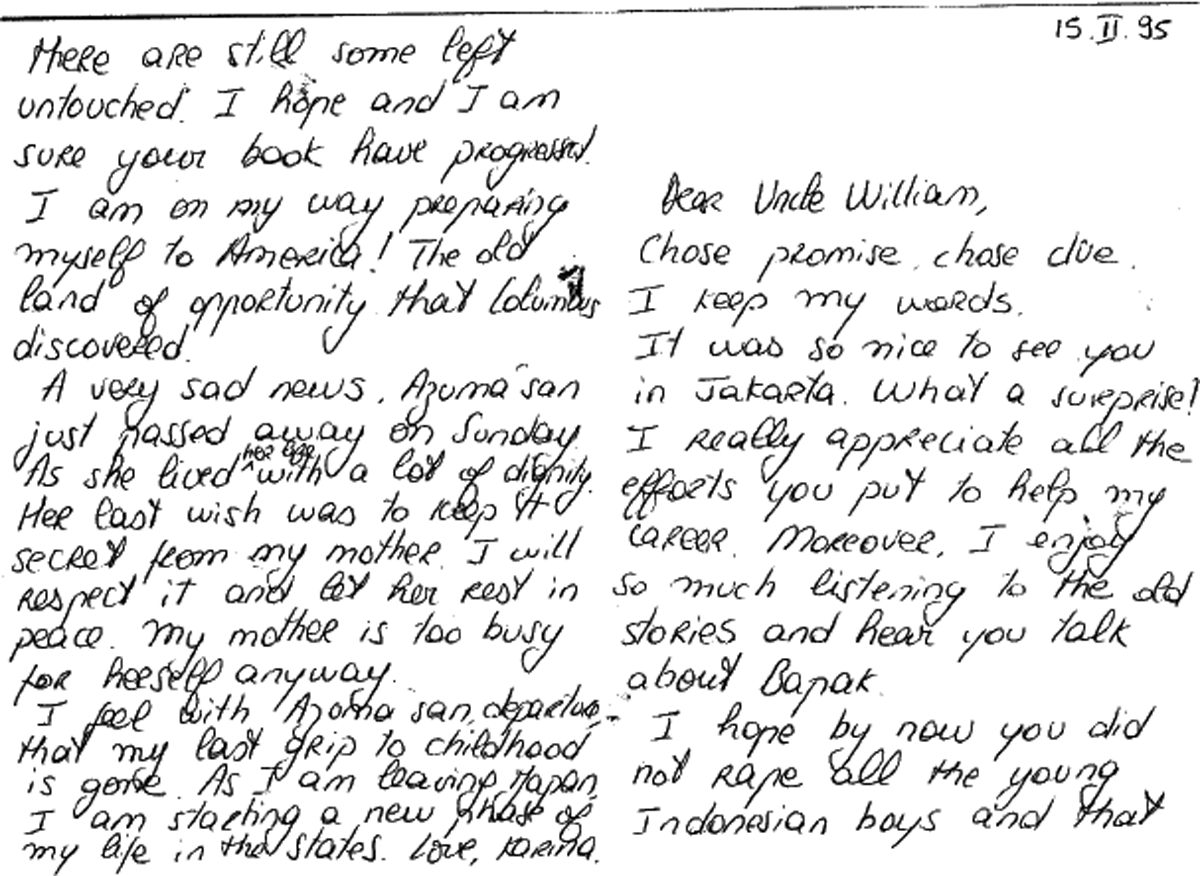 15.II.95
Dear Uncle William,
Chose promise, chose due.
I keep my words.
It was so nice to see you
in Jakarta. What a surprise!
I really appreciate all the
efforts you put to help my
career. Moreover, I enjoy
so much listening to the old
stories and hear you talk
about Bapak.
I hope by now you did
not rape all the young
Indonesian boys and that
there are still some left
untouched. I hope and I am
sure your book have progressed.
I am on my way preparing
myself to America! The old
land of opportunity that Columbus
discovered.
A very sad news. Azuma san
just passed away on Sunday.
As she lived her life with a lot of dignity.
Her last wish was to keep it
secret from my mother. I will
respect it and let her rest in
peace. My mother is too busy
for herself anyway.
I feel with Azuma san, departure,
that my last grip to childhood
is gone. As I am leaving Japan,
I am starting a new phase of
my life in the States. Love, Karina.